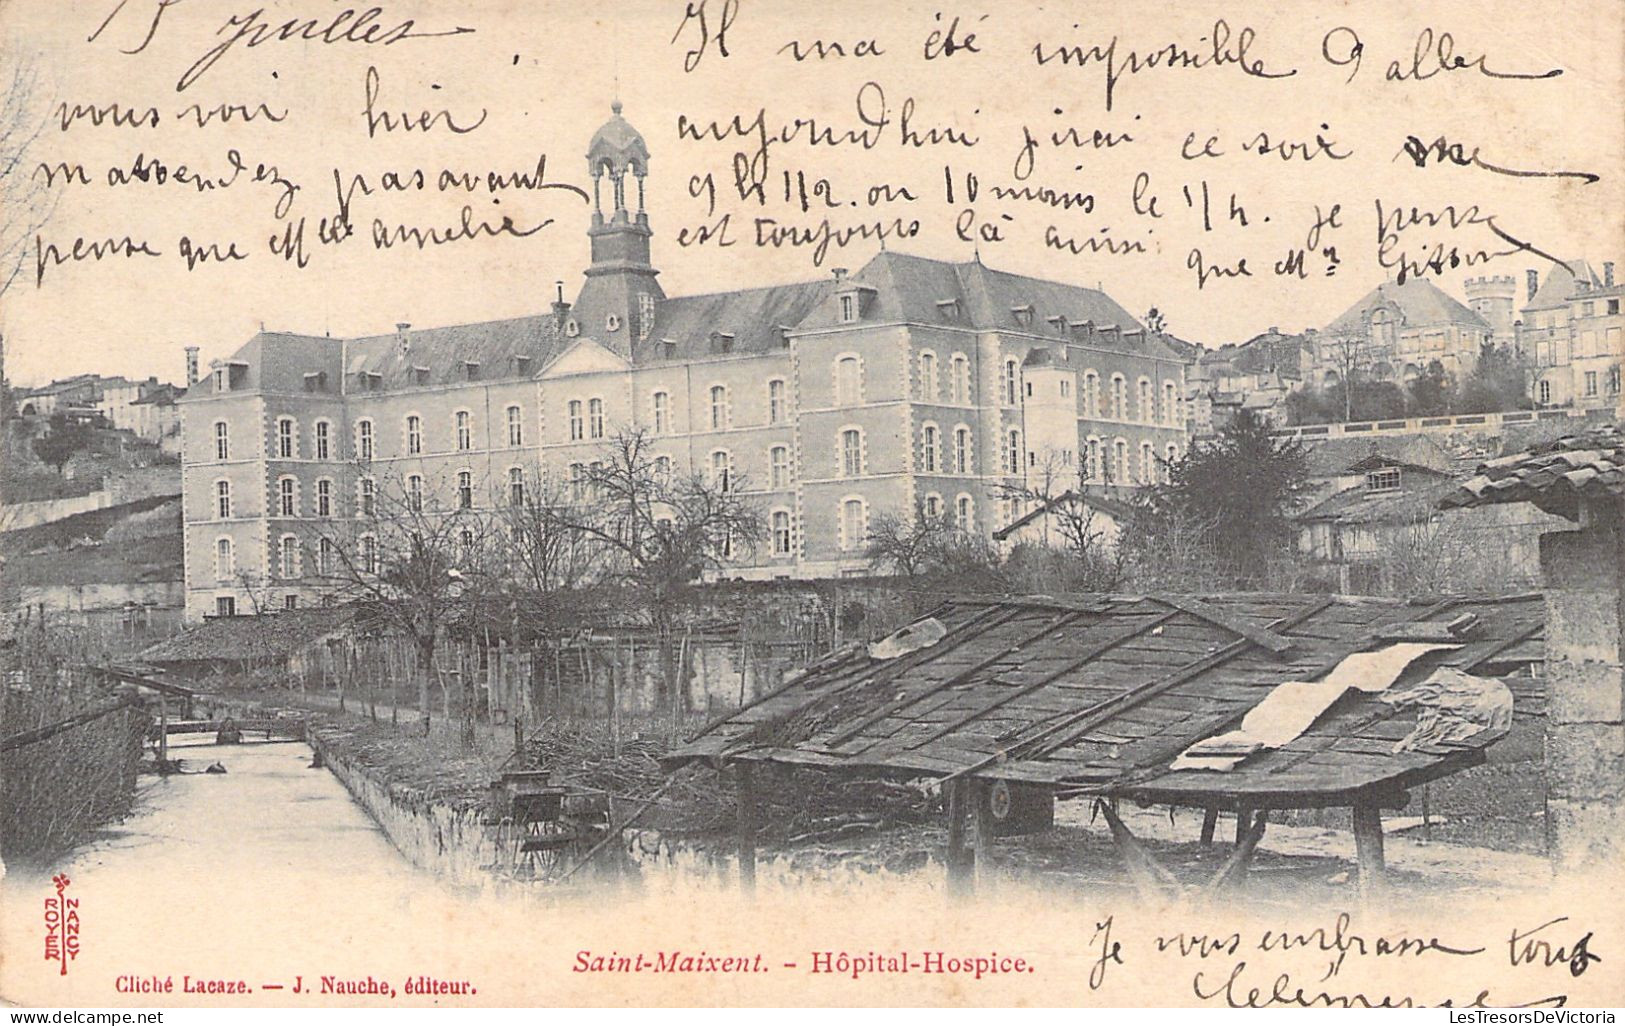 15 juillet
Il ma été impossible d aller
vous voir hier aujourdhui jirai ce soir ne
mattendez pas avant 9 h 1/2. ou 10 moins le 1/4. je pense
pense que Mlle amelie est toujours là ainsi que Mr
Je vous embrasse tous
Clémence
Saint-Maixent. - Hôpital-Hospice.
Cliché Lacaze. — J. Nauche, éditeur.
ROYER NANCY
delcampe.net
LesTresorsDeVictoria